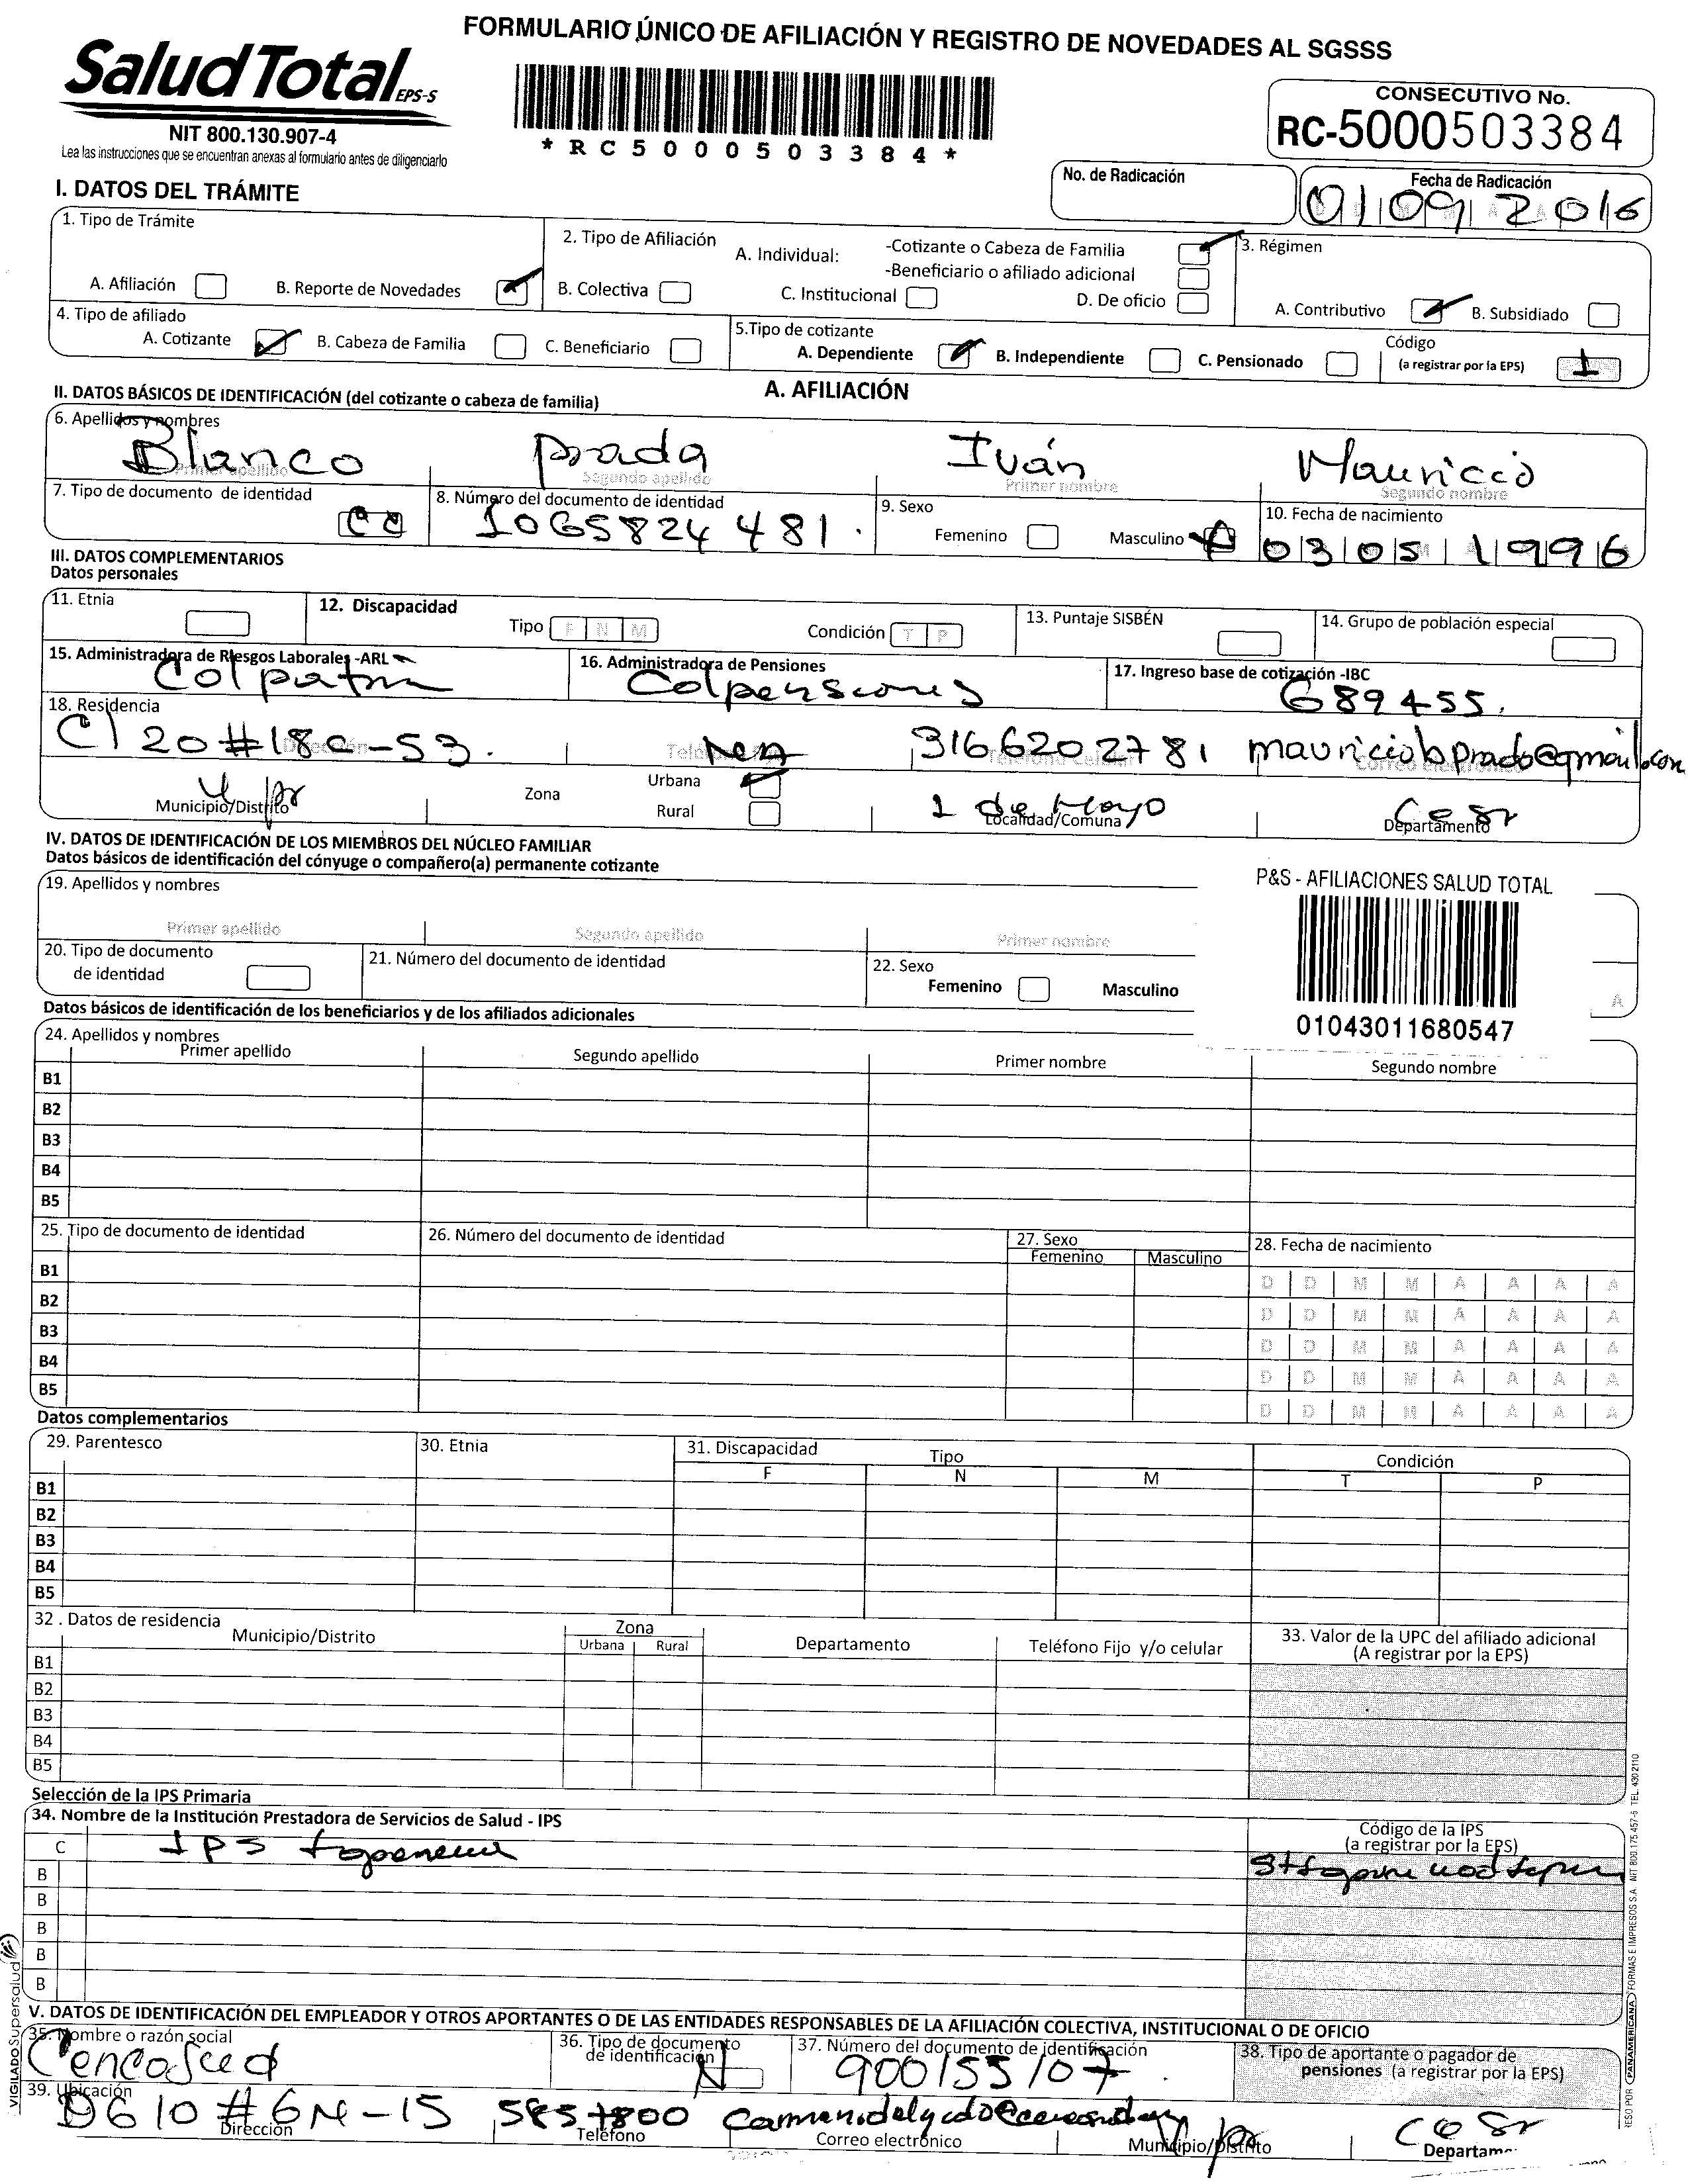 FORMULARIO ÚNICO DE AFILIACIÓN Y REGISTRO DE NOVEDADES AL SGSSS
SaludTotal EPS-S
NIT 800.130.907-4
Lea las instrucciones que se encuentran anexas al formulario antes de diligenciarlo
*RC5000503384*
CONSECUTIVO No.
RC-5000503384
No. de Radicación
Fecha de Radicación
01 09 2016
I. DATOS DEL TRÁMITE
1. Tipo de Trámite
A. Afiliación B. Reporte de Novedades
2. Tipo de Afiliación A. Individual: -Cotizante o Cabeza de Familia
-Beneficiario o afiliado adicional
B. Colectiva C. Institucional D. De oficio
3. Régimen
A. Contributivo B. Subsidiado
4. Tipo de afiliado
A. Cotizante B. Cabeza de Familia C. Beneficiario
5.Tipo de cotizante
A. Dependiente B. Independiente C. Pensionado
Código
(a registrar por la EPS) 1
A. AFILIACIÓN
II. DATOS BÁSICOS DE IDENTIFICACIÓN (del cotizante o cabeza de familia)
6. Apellidos y nombres
Blanco Prada Iván Mauricio
Primer apellido Segundo apellido Primer nombre Segundo nombre
7. Tipo de documento de identidad
CC
8. Número del documento de identidad
1065824481.
9. Sexo
Femenino Masculino
10. Fecha de nacimiento
03 05 1996
III. DATOS COMPLEMENTARIOS
Datos personales
11. Etnia
12. Discapacidad
Tipo F N M Condición T P
13. Puntaje SISBÉN
14. Grupo de población especial
15. Administradora de Riesgos Laborales -ARL
Colpatria
16. Administradora de Pensiones
Colpensiones
17. Ingreso base de cotización -IBC
689455.
18. Residencia
Cl 20 #18c-53. 3166202781 mauriciobprado@gmail.com
Dirección Teléfono Fijo Teléfono Celular Correo electrónico
Municipio/Distrito
Zona Urbana
Rural
1 de Mayo
Localidad/Comuna
Cesr
Departamento
IV. DATOS DE IDENTIFICACIÓN DE LOS MIEMBROS DEL NÚCLEO FAMILIAR
Datos básicos de identificación del cónyuge o compañero(a) permanente cotizante
19. Apellidos y nombres
Primer apellido Segundo apellido Primer nombre
P&S - AFILIACIONES SALUD TOTAL
01043011680547
20. Tipo de documento
de identidad
21. Número del documento de identidad
22. Sexo
Femenino Masculino
A
Datos básicos de identificación de los beneficiarios y de los afiliados adicionales
24. Apellidos y nombres
Primer apellido Segundo apellido Primer nombre Segundo nombre
B1
B2
B3
B4
B5
25. Tipo de documento de identidad 26. Número del documento de identidad 27. Sexo 28. Fecha de nacimiento
Femenino Masculino
B1 D D M M A A A A
B2 D D M M A A A A
B3 D D M M A A A A
B4 D D M M A A A A
B5 D D M M A A A A
Datos complementarios
29. Parentesco 30. Etnia 31. Discapacidad Tipo Condición
F N M T P
B1
B2
B3
B4
B5
32 . Datos de residencia
Municipio/Distrito Zona Departamento Teléfono Fijo y/o celular
Urbana Rural
33. Valor de la UPC del afiliado adicional
(A registrar por la EPS)
B1
B2
B3
B4
B5
Selección de la IPS Primaria
34. Nombre de la Institución Prestadora de Servicios de Salud - IPS
Código de la IPS
(a registrar por la EPS)
C IPS
B
B
B
B
B
V. DATOS DE IDENTIFICACIÓN DEL EMPLEADOR Y OTROS APORTANTES O DE LAS ENTIDADES RESPONSABLES DE LA AFILIACIÓN COLECTIVA, INSTITUCIONAL O DE OFICIO
35. Nombre o razón social
Cencosud
36. Tipo de documento
de identificación
N
37. Número del documento de identificación
900155107.
38. Tipo de aportante o pagador de
pensiones (a registrar por la EPS)
39. Ubicación
DG 10 #6N-15 5857800
Dirección Teléfono Correo electrónico Municipio/Distrito
Cesr
Departam
VIGILADO Supersalud
RESO POR PANAMERICANA FORMAS E IMPRESOS S.A. NIT 800.175.457-5 TEL. 430 2110